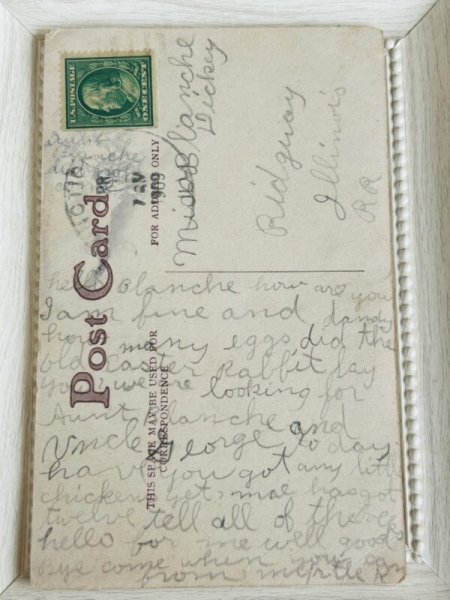 U.S. POSTAGE
ONE CENT
Aunt
Blanche
1909
Post Card
THIS SPACE MAY BE USED FOR
CORRESPONDENCE
FOR ADDRESS ONLY
Miss Blanche
Dickey
Ridgway
Illinois
RR
hello Blanche how are you
I am fine and dandy
how many eggs did the
old Easter Rabbit lay
you we are looking for
Aunt Blanche and
Uncle George today
have you got any little
chickens yet mae has got
twelve tell all of the
hello for me well good
bye come when you can
from